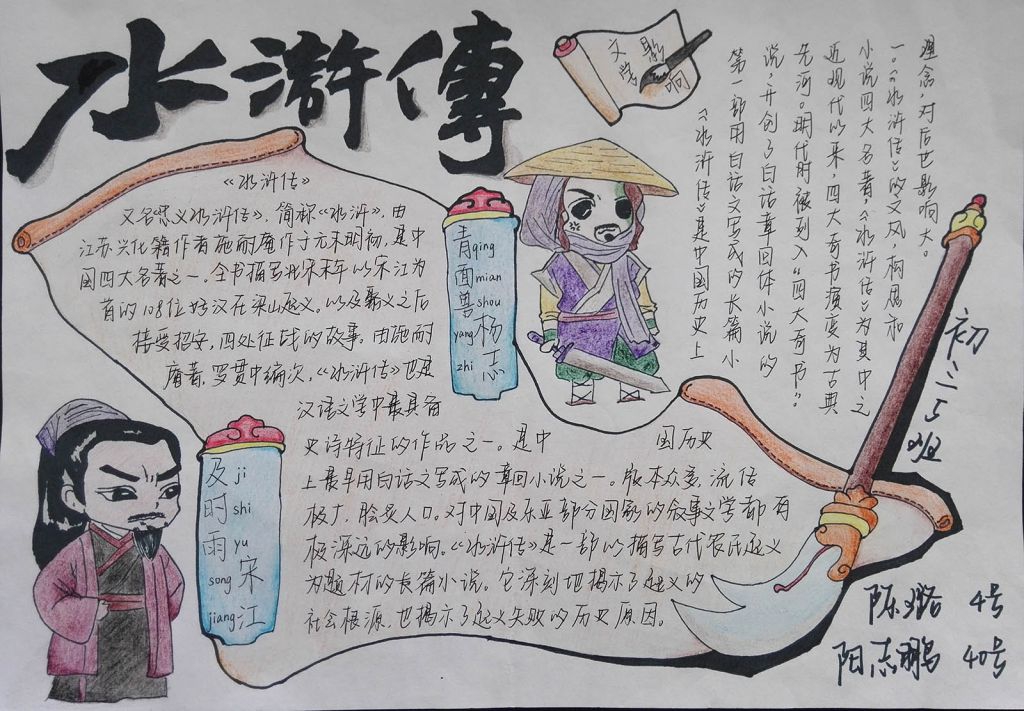 水滸傳
《水浒传》
又名《忠义水浒传》,简称《水浒》,由
江苏兴化籍作者施耐庵作于元末明初,是中
国四大名著之一。全书描写北宋末年以宋江为
首的108位好汉在梁山起义。以及聚义之后
接受招安,四处征战的故事。由施耐
庵著,罗贯中编次,《水浒传》也是
汉语文学中最具备
史诗特征的作品之一。是中 国历史
上最早用白话文写成的章回小说之一。版本众多,流传
极广,脍炙人口。对中国及东亚部分国家的叙事文学都有
极深远的影响。《水浒传》是一部以描写古代农民起义
为题材的长篇小说。它深刻地揭示了起义的
社会根源,也揭示了起义失败的历史原因。
青qing
面mian
兽shou
yang杨
zhi志
及ji
时shi
雨yu
song宋
jiang江
文学
影响
《水浒传》是中国历史上
第一部用白话文写成的长篇小
说,开创了白话章回体小说的
先河。明代时被列入“四大奇书”
近现代以来,四大奇书演变为古典
小说四大名著,《水浒传》为其中之
一。《水浒传》的文风,构思和
理念,对后世影响大。
初二5班
陈璐 4号
阳志鹏 40号